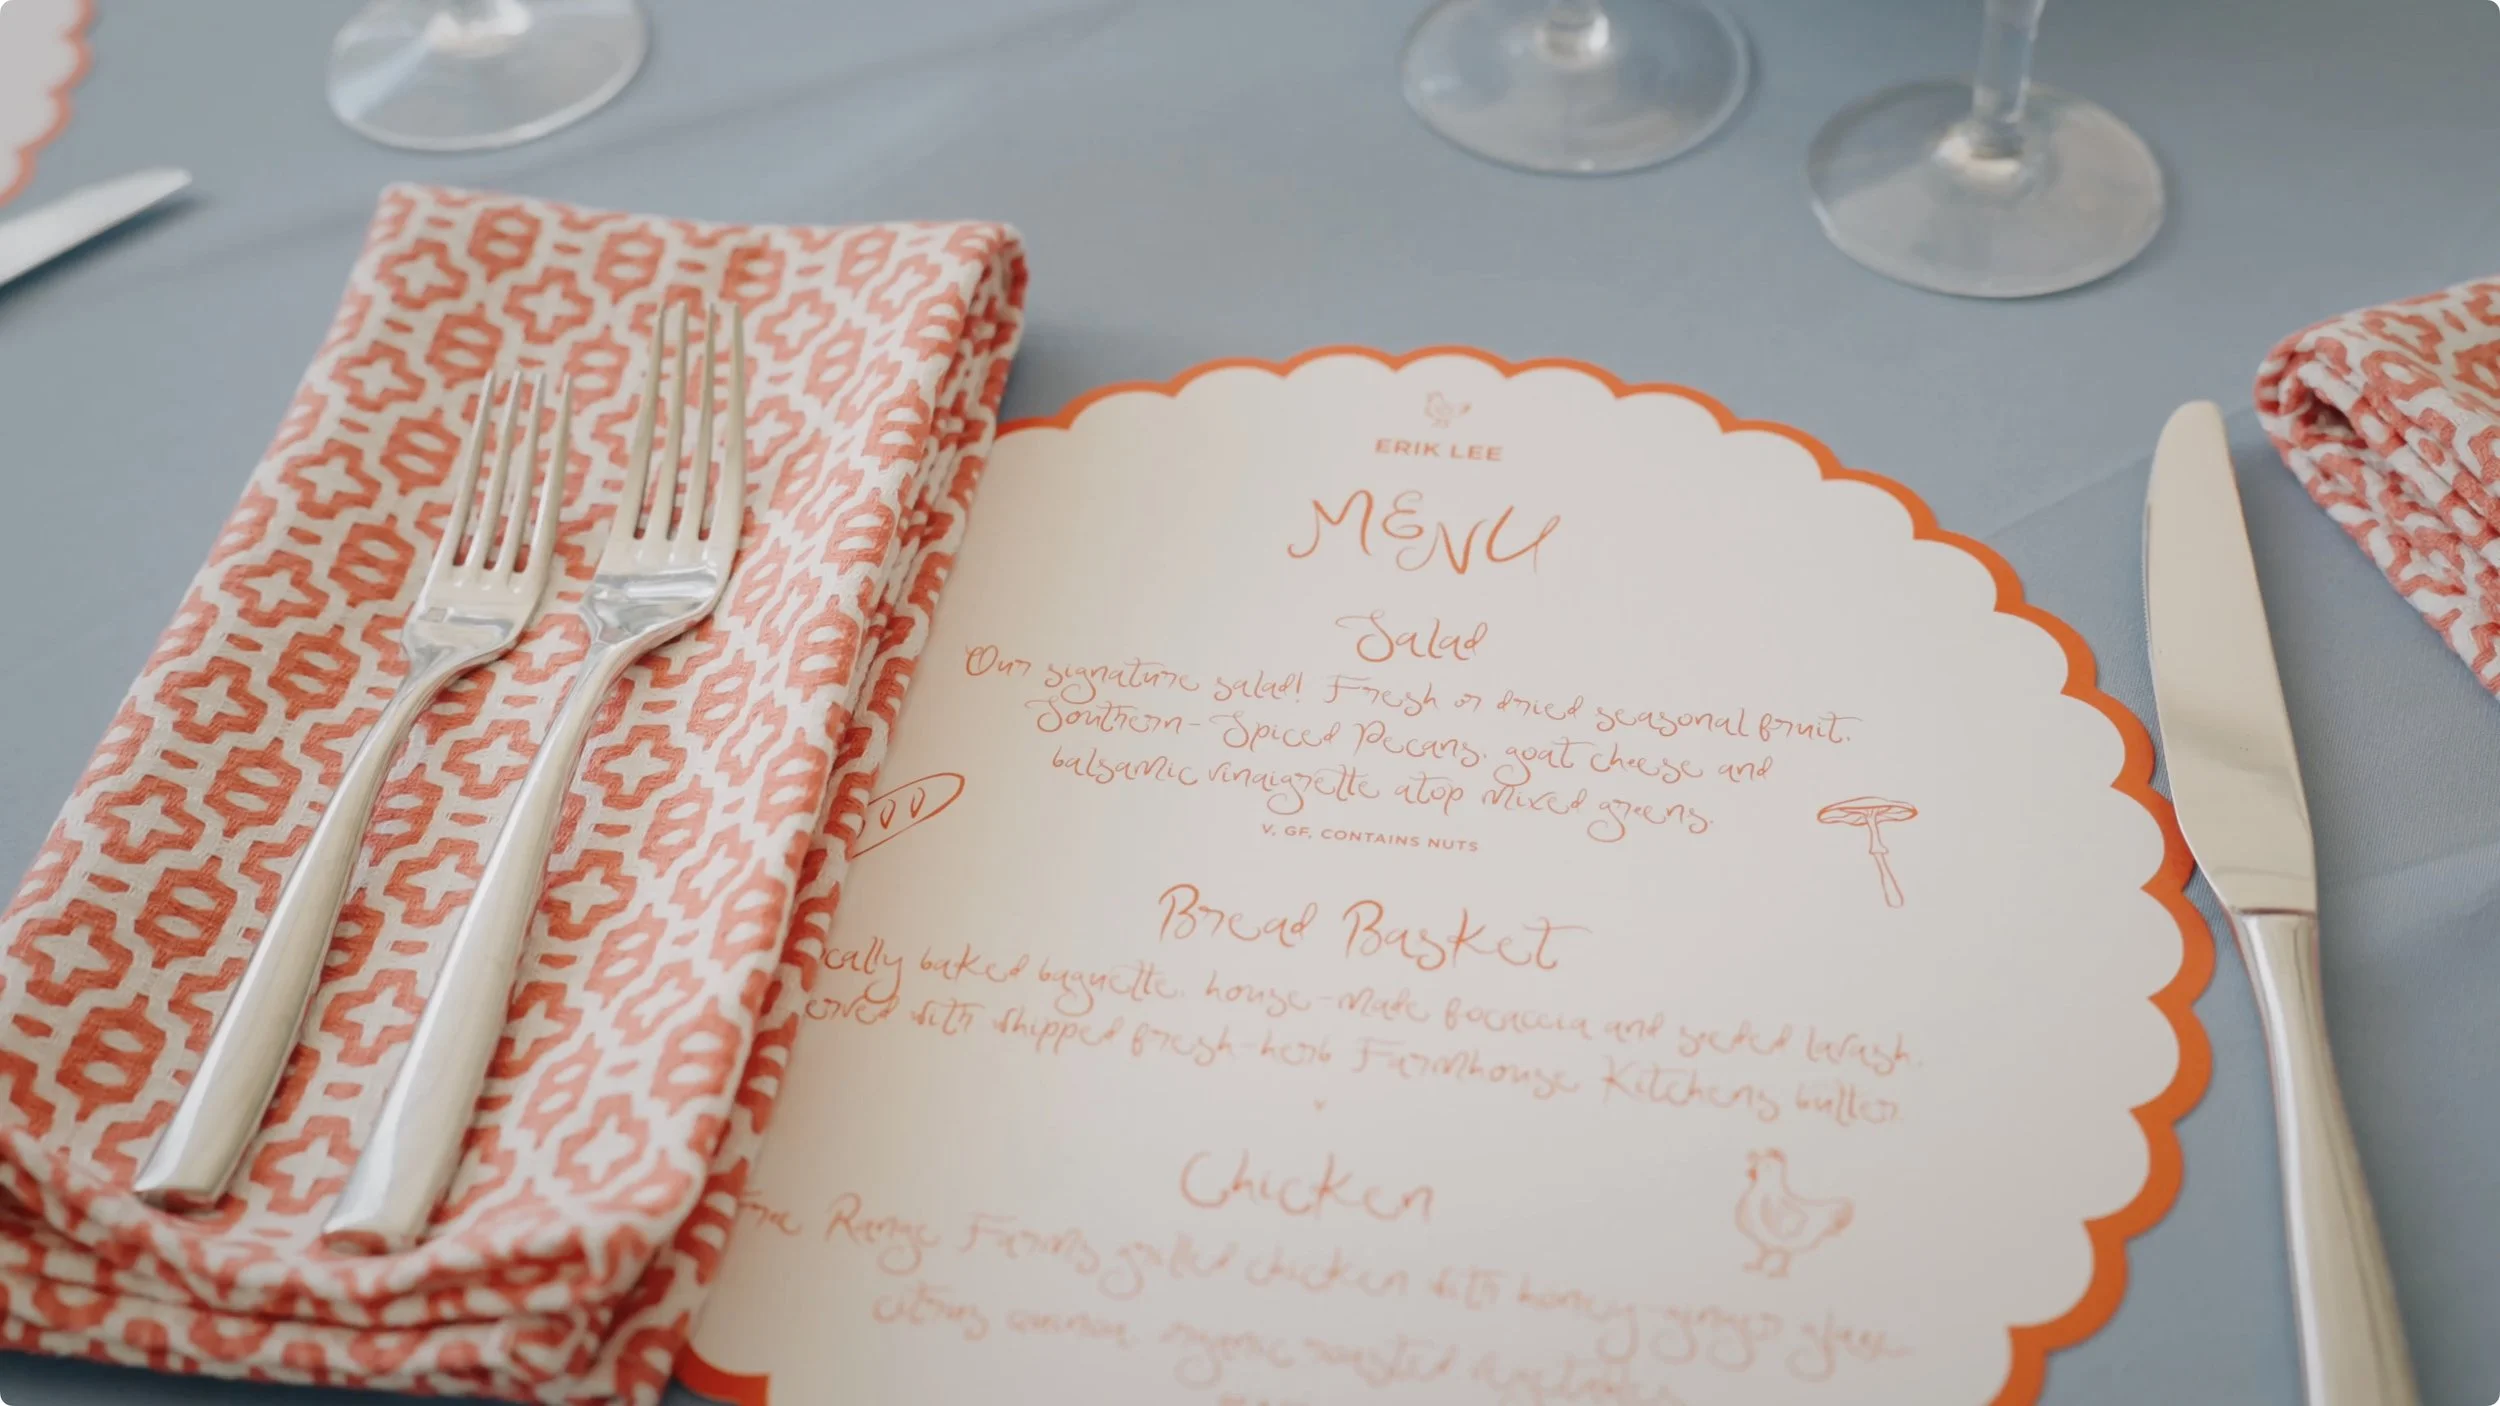 ERIK LEE
MENU
Salad
Our signature salad! Fresh or dried seasonal fruit,
Southern-Spiced Pecans, goat cheese and
balsamic vinaigrette atop mixed greens.
V, GF, CONTAINS NUTS
Bread Basket
ocally baked baguette, house-made focaccia and seeded lavash,
erved with whipped fresh-herb Farmhouse Kitchens butter.
V
Chicken
Free Range Farms grilled chicken with honey-ginger glaze
citrus quinoa, organic roasted vegetables